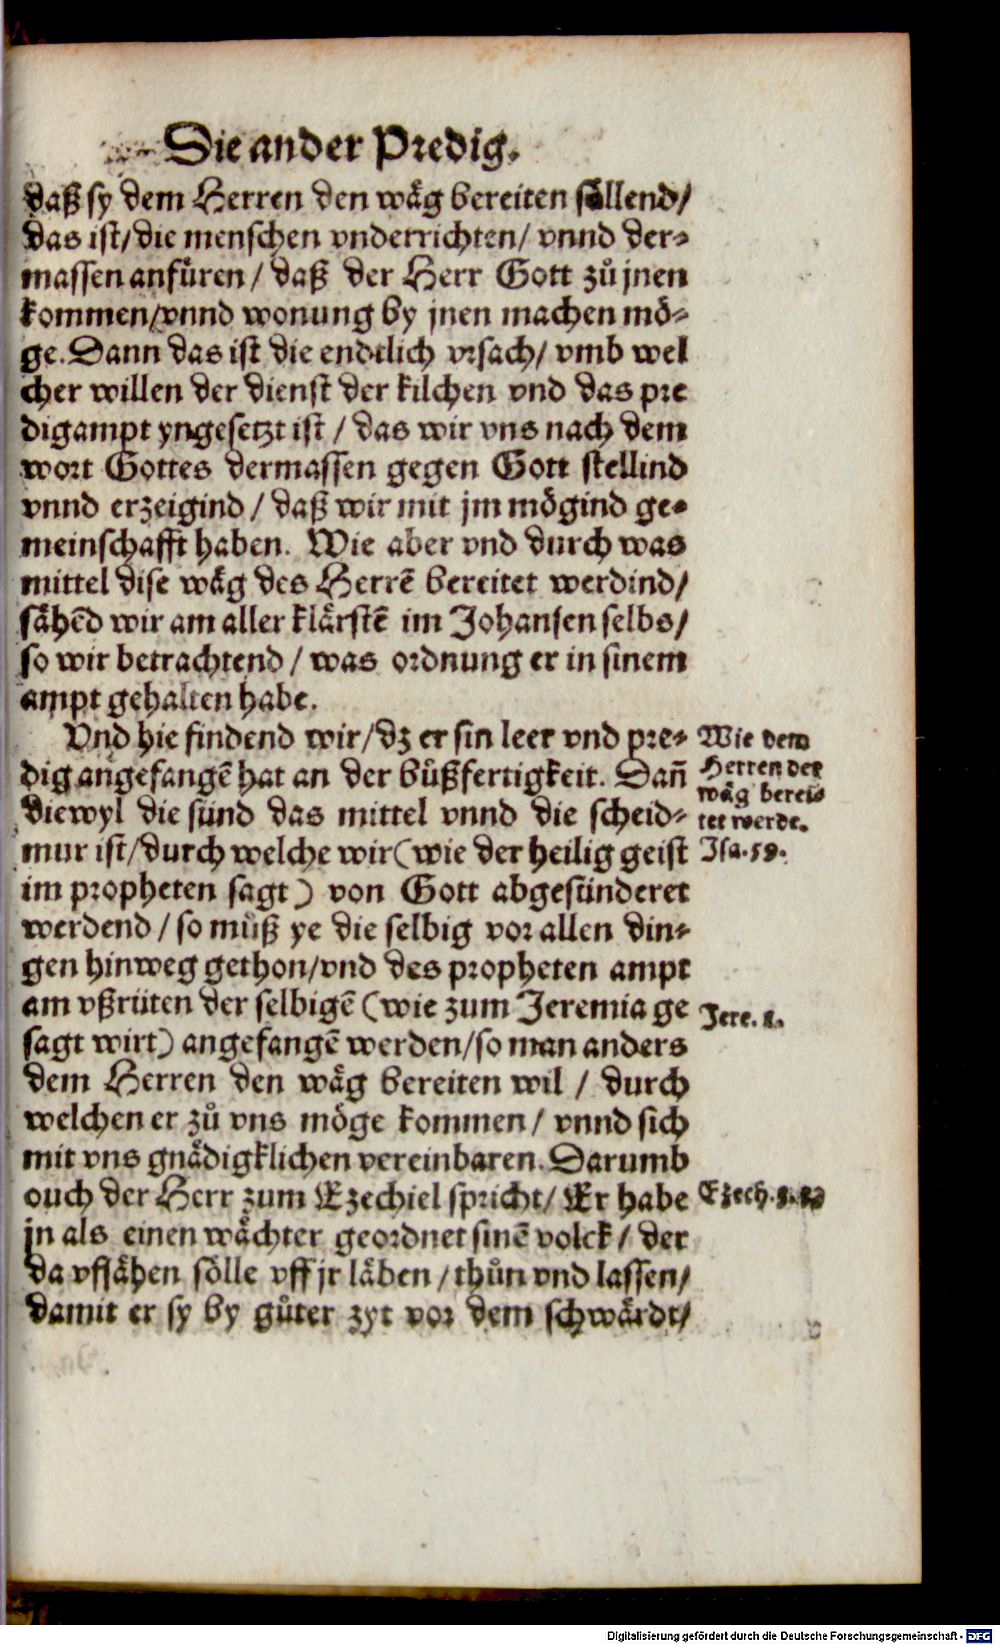 Die ander Predig.
daß sy dem Herren den wäg bereiten söllend/
das ist/ die menschen vnderrichten/ vnnd der⸗
massen anfüren/ daß der Herr Gott zů jnen
kommen/ vnnd wonung by jnen machen mö⸗
ge. Dann das ist die endtlich vrsach/ vmb wel
cher willen der dienst der kilchen vnd das pre
digampt yngesetzt ist/ das wir vns nach dem
wort Gottes dermassen gegen Gott stellind
vnnd erzeigind/ daß wir mit jm mögind ge⸗
meinschafft haben. Wie aber vnd durch was
mittel dise wäg des Herrē bereitet werdind/
sähēd wir am aller klärstē im Johansen selbs/
so wir betrachtend/ was ordnung er in sinem
ampt gehalten habe.
Vnd hie findend wir/ dz er sin leer vnd pre⸗
dig angefangē hat an der bůßfertigkeit. Dañ
diewyl die sünd das mittel vnnd die scheid⸗
mur ist/ durch welche wir (wie der heilig geist
im propheten sagt) von Gott abgesünderet
werdend/ so můß ye die selbig vor allen din⸗
gen hinweg gethon/ vnd des propheten ampt
am vßrüten der selbigē (wie zum Jeremia ge
sagt wirt) angefangē werden/ so man anders
dem Herren den wäg bereiten wil/ durch
welchen er zů vns möge kommen/ vnnd sich
mit vns gnädigklichen vereinbaren. Darumb
ouch der Herr zum Ezechiel spricht/ Er habe
jn als einen wächter geordnet sinē volck/ der
da vffsähen sölle vff jr läben/ thůn vnd lassen/
damit er sy by gůter zyt vor dem schwärdt/
Wie dem
Herren der
wäg berei⸗
tet werde.
Isa. 59.
Jere. 1.
Ezech. 3.
Digitalisierung gefördert durch die Deutsche Forschungsgemeinschaft - DFG